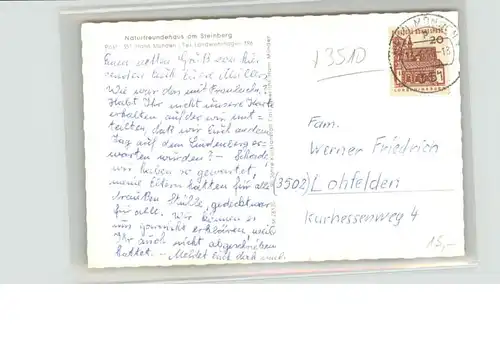 Naturfreundehaus am Steinberg
Post: 351 Hann. Münden · Tel. Landwehrhagen 396
Einen netten Gruß von hier
senden Euch Eure Müllers.
Wie war das mit
Habt Ihr nicht unsere Karte
erhalten auf der wir mit-
teilten, daß wir Euch an dem
Tag auf dem Lindenberg er-
warten würden? - Schade,
wir haben so gewartet,
meine Eltern hatten für alle
draußen Stühle, gedeckt war
für alle. Wir können es
uns garnicht erklären, weil
Ihr auch nicht abgeschrieben
hattet. - Meldet Euch doch mal
13510
MÜNDEN
DEUTSCHE BUNDESPOST
20
Fam.
Werner Friedrich
(3502) Lohfelden
Kurhessenweg 4
15,-